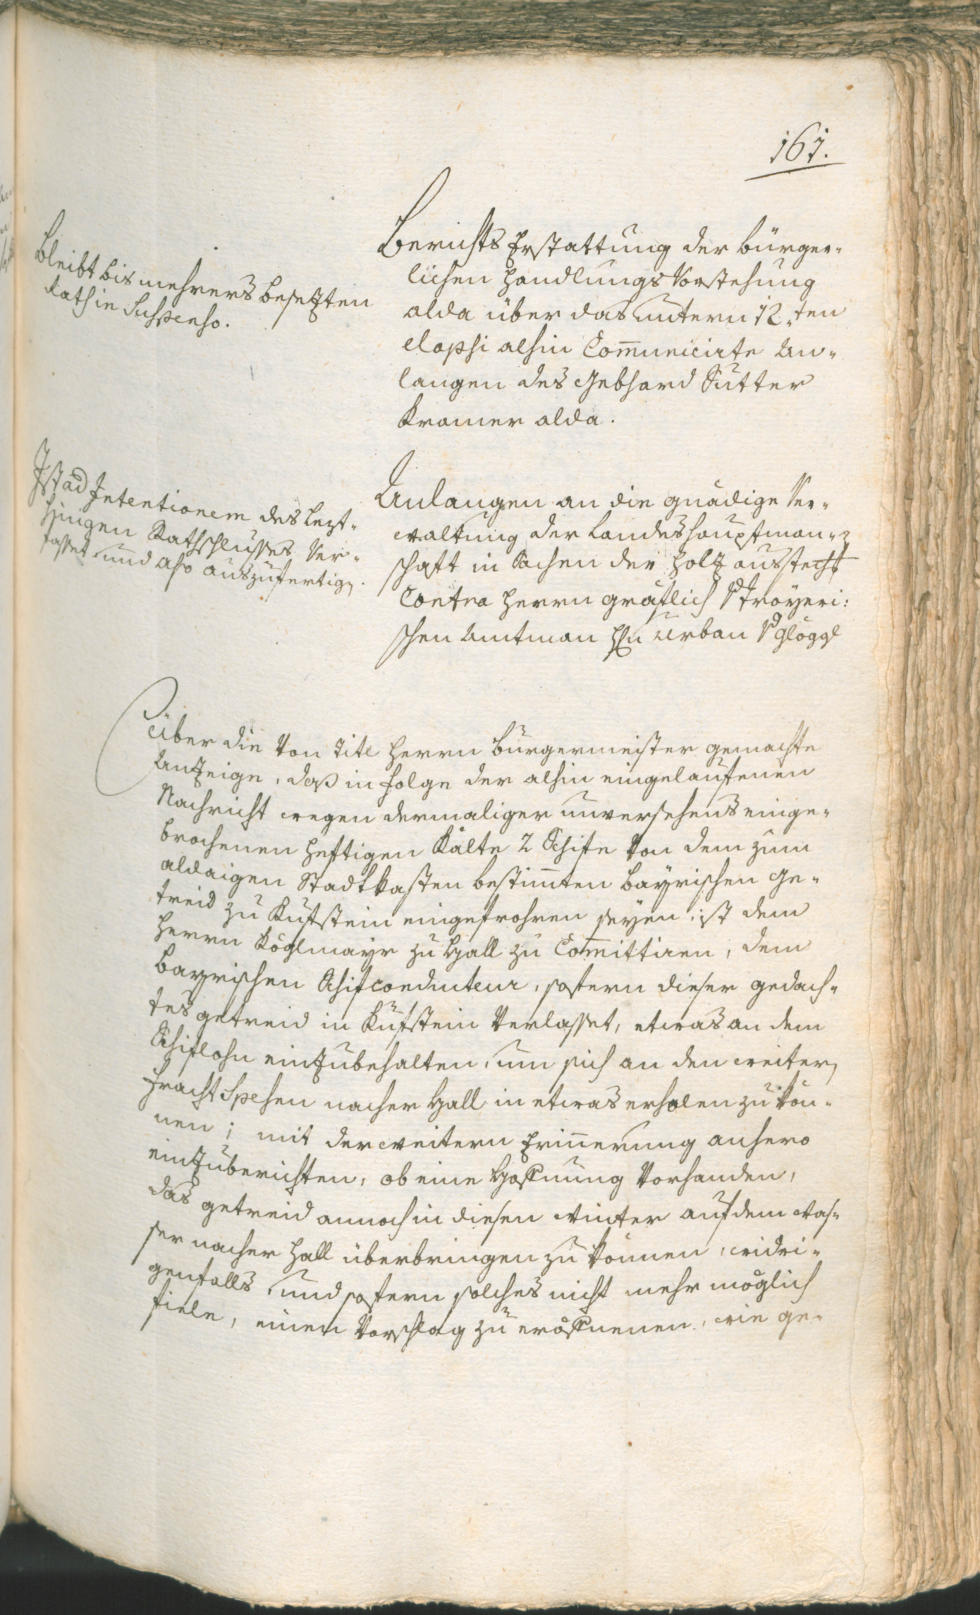 161.
Bleibt bis mehrers besetzten
Rath in Suspenso.
Berichts Erstattung der bürger-
lichen Handlungs Vorstehung
alda über das untern 12.ten
elapsi alhin Communicirte An-
langen des Gebhard Sutter
Kramer alda.
Ist ad Intentionem des lezt-
hinigen Rathschlusses Ver-
fasset und also auszufertigen.
Anlangen an die gnädige Ver-
waltung der Landeshauptman-
schaft in Sachen der Holz austecht
Contra Herrn gräflich Stroÿeri:
schen Amtman Hn Urban Glöggl
Über die Von Titl Herrn Bürgermeister gemachte
Antzeige, daß in Folge der alhin eingelaufenen
Nachricht wegen dermaliger unversehens einge-
brochenen heftigen Kälte 2 Schife Von dem zum
aldaigen Stadtkasten bestimten bayrischen Ge-
treid zu Kufstein eingefrohren seyen, ist dem
Herrn Köglmayr zu Hall zu Comittiren, dem
bayrischen Schifconducteur, sofern dieser gedach-
tes getreid in Kufstein Verlasset, etwas an dem
Schiflohn eintzubehalten, um sich an den weitern
Fracht Spesen nacher Hall in etwas erholen zu kön-
nen; mit der weitern Erinnerung anhero
eintzuberichten, ob eine Hofnung Vorhanden,
das getreid annoch in diesen Winter auf dem Was-
ser nacher Hall überbringen zu können, widri-
genfalls und sofern solches nicht mehr möglich
fiele, einen Vorschlag zu eröfnenen, wie ge-